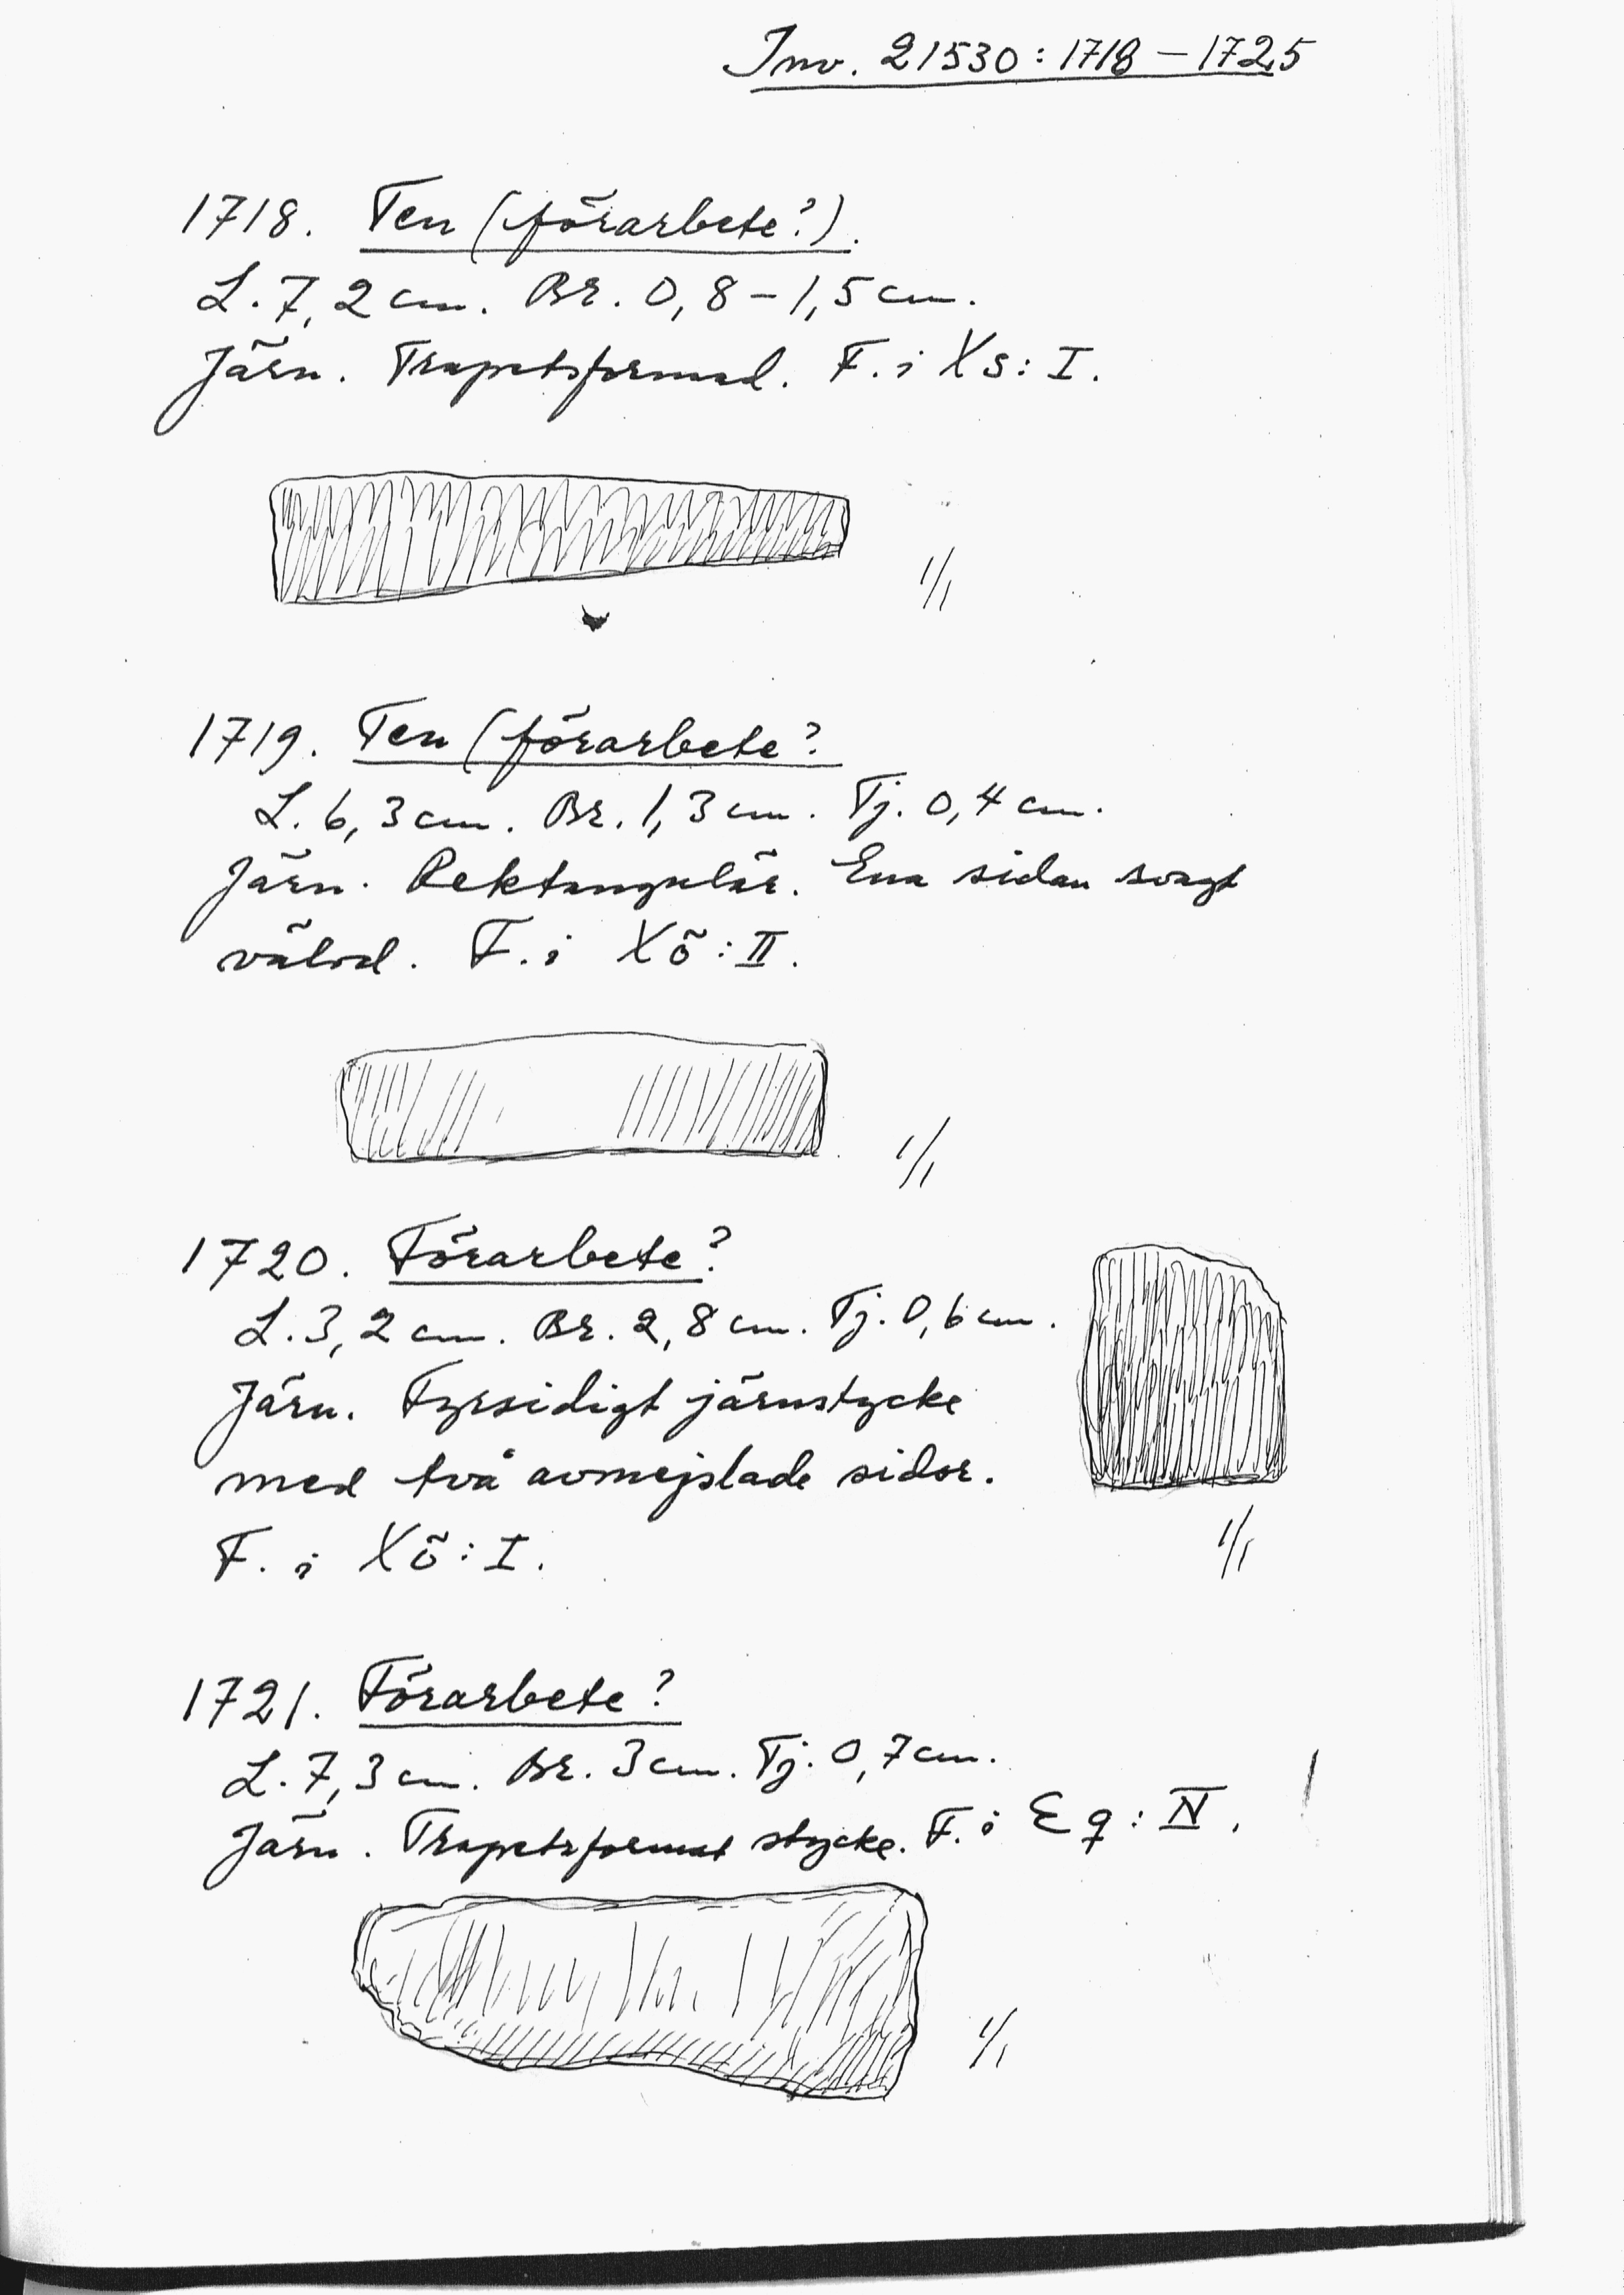 Inv. 21530:1718-1725
1718. Ten (förarbete?).
L. 7,2 cm. Br. 0,8-1,5 cm.
Järn. Trapetsformad. F. i Xs: I.
1/1
1719. Ten (förarbete?
L. 6,3 cm. Br. 1,3 cm. Tj. 0,4 cm.
Järn. Rektangulär. Ena sidan svagt
välvd. F. i Xö: II.
1/1
1720. Förarbete?
L. 3,2 cm. Br. 2,8 cm. Tj. 0,6 cm.
Järn. Fyrsidigt järnstycke
med två avmejslade sidor.
F. i Xö: I.
1/1
1721. Förarbete?
L. 7,3 cm. Br. 3 cm. Tj. 0,7 cm.
Järn. Trapetsformat stycke. F. i Eq: IV.
1/1